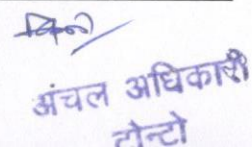 अंचल अधिकारी
टोन्टो